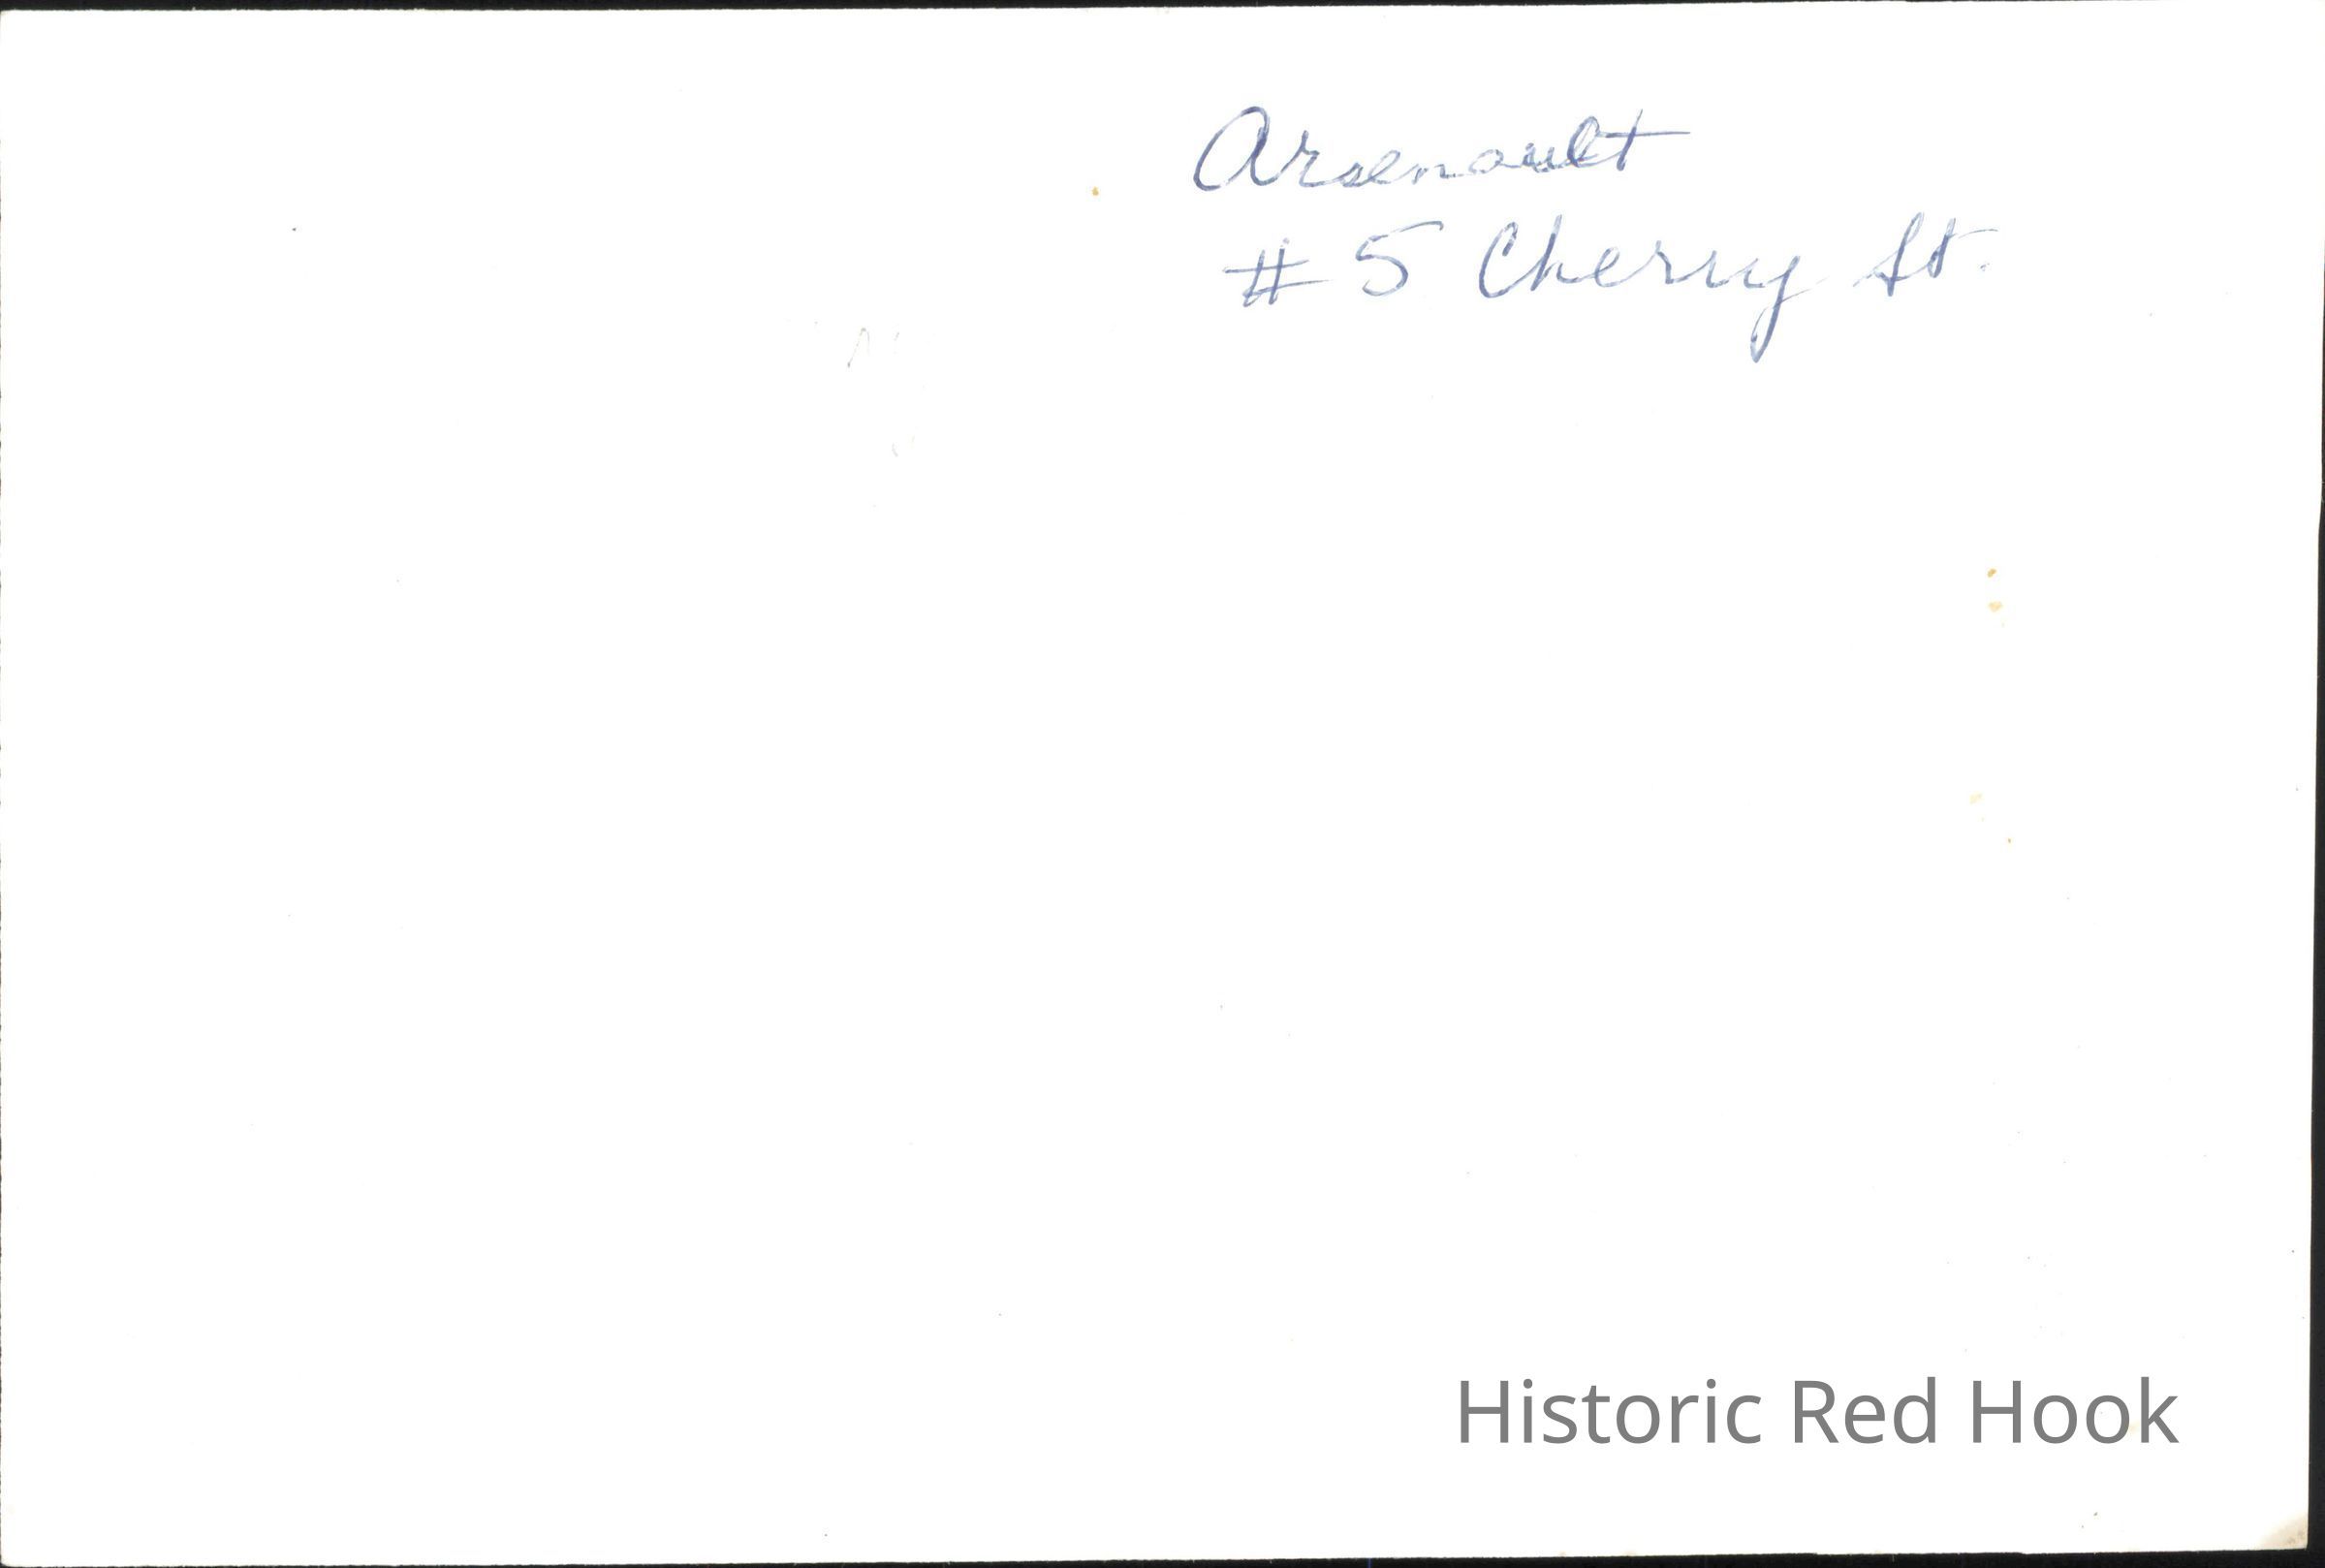 Arsenault
# 5 Cherry St.
Historic Red Hook